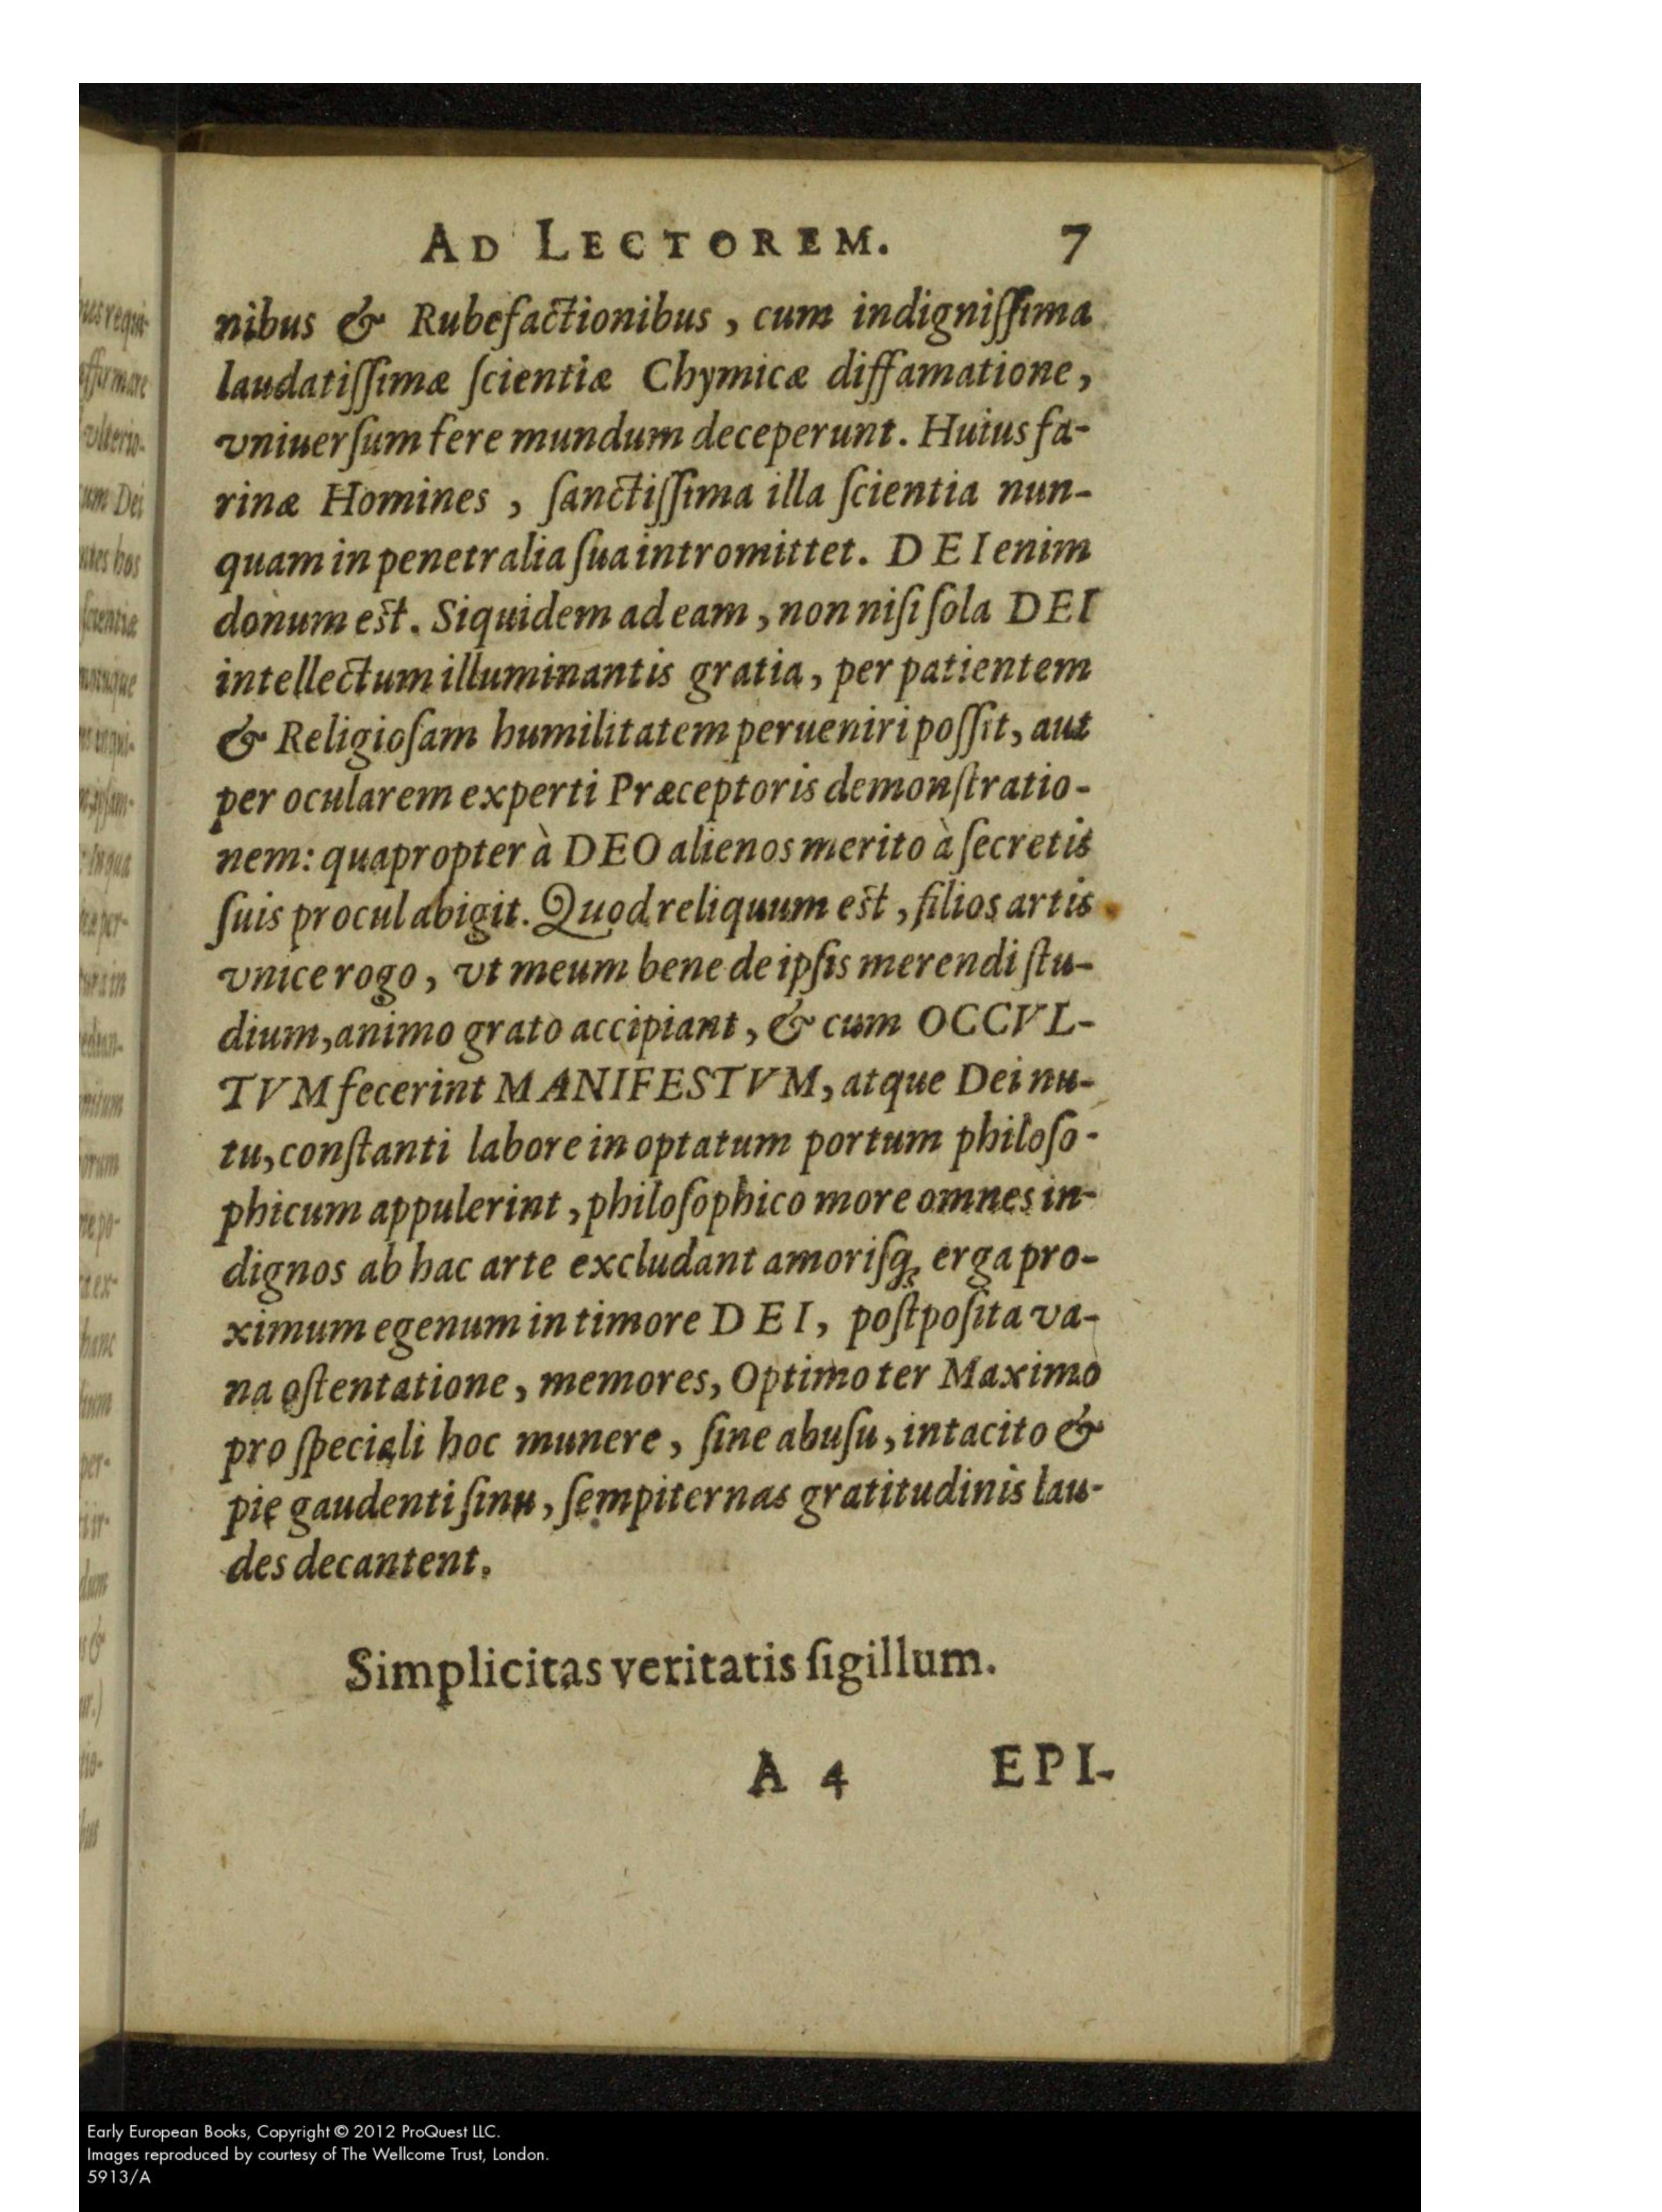 AD LECTOREM. 7
nibus & Rubefactionibus, cum indignißima
laudatiſſimæ ſcientiæ Chymicæ diffamatione,
vniuerſum fere mundum deceperunt. Huius fa-
rinæ Homines, ſanctiſſima illa ſcientia nun-
quam in penetralia ſua intromittet. DEI enim
donum est. Siquidem ad eam, non niſi ſola DEI
intellectum illuminantis gratia, per patientem
& Religioſam humilitatem perueniri poſſit, aut
per ocularem experti Præceptoris demonſtratio-
nem: quapropter à DEO alienos merito à ſecretis
ſuis procul abigit. Quod reliquum est, filios artis
vnice rogo, vt meum bene de ipſis merendi ſtu-
dium, animo grato accipiant, & cum OCCVL-
TVM fecerint MANIFESTVM, atque Dei nu-
tu, conſtanti labore in optatum portum philoſo-
phicum appulerint, philoſophico more omnes in-
dignos ab hac arte excludant amoriſq; erga pro-
ximum egenum in timore DEI, poſtpoſita va-
na oſtentatione, memores, Optimo ter Maximo
pro ſpeciali hoc munere, ſine abuſu, in tacito &
pie gaudenti ſinu, ſempiternas gratitudinis lau-
des decantent.
Simplicitas veritatis ſigillum.
A 4 EPI-
Early European Books, Copyright © 2012 ProQuest LLC.
Images reproduced by courtesy of The Wellcome Trust, London.
5913/A